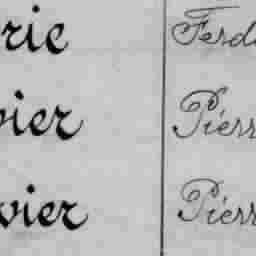 rie Ferd
vier Pierr
vier Pierr